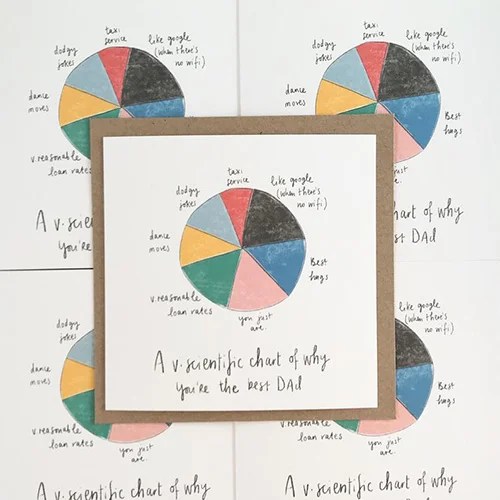 taxi
service
like google
(when there's
no wifi)
dodgy
jokes
dance
moves
Best
hugs
v.reasonable
loan rates
you just
are.
A v. scientific chart of why
you're the best DAd
taxi
service
like google
(when there's
no wifi)
dodgy
jokes
dance
moves
v.reasonable
loan rates
A v. scienti
you're the b
taxi
service
like google
(when there's
no wifi)
dodgy
jokes
Best
hugs
are.
chart of why
best DAd
dodgy
jokes
dance
moves
v.reasonable
loan rates
you just
are.
A v. scientific chart of why
google
(when there's
no wifi)
Best
hugs
you just
are.
chart of why